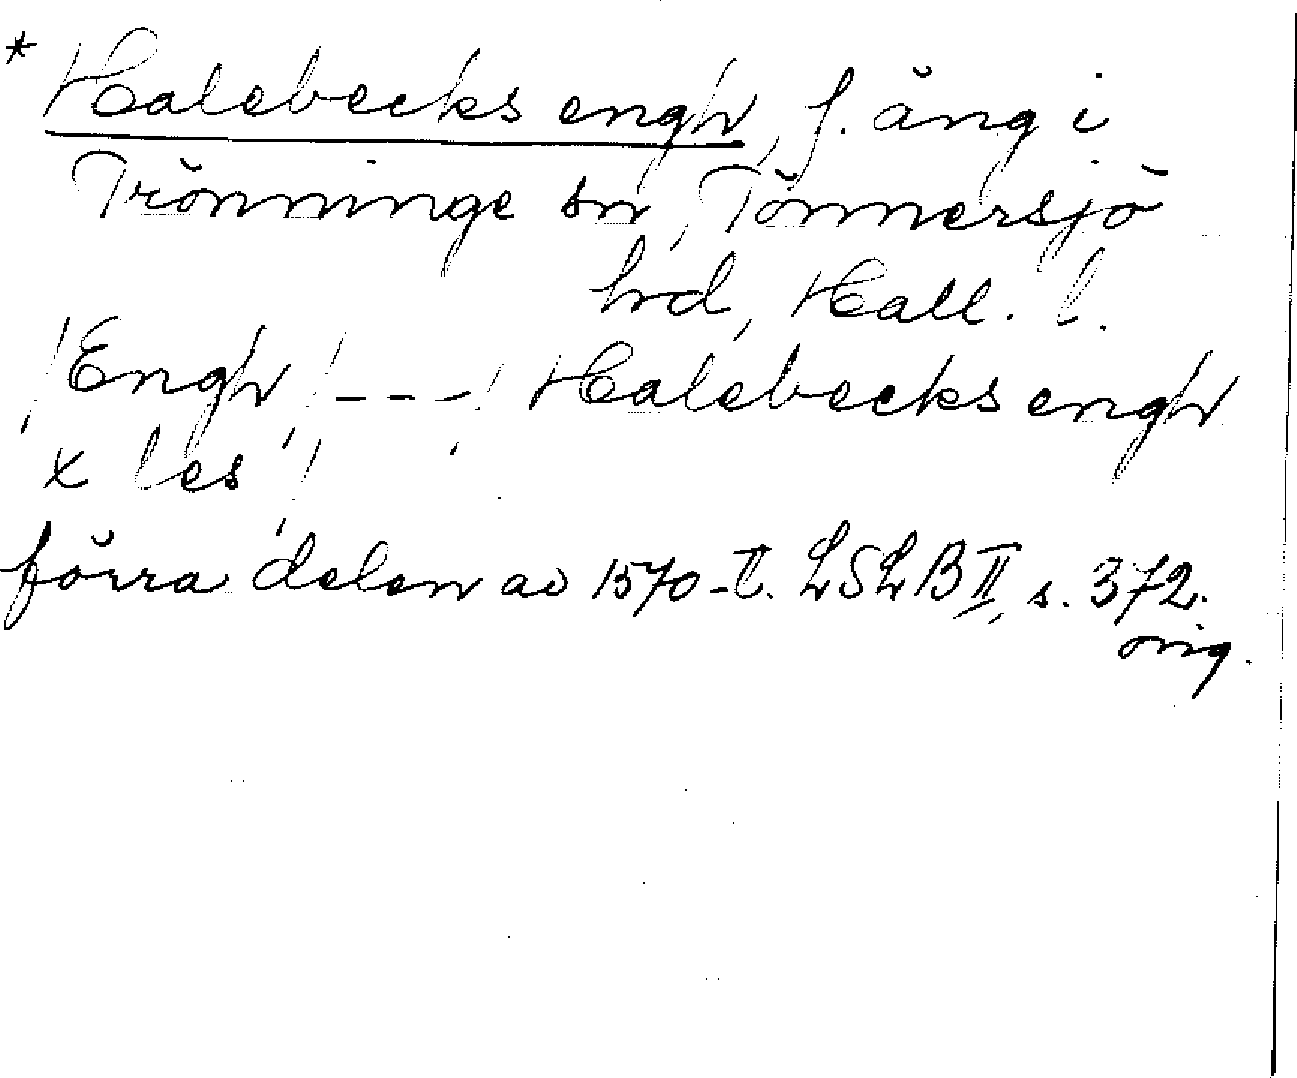 * Halebecks engh, f. äng i
Trönninge sn, Tönnersjö
hrd, Hall. l.
/Engh/ --- / Halebecks engh
x les /
förra delen av 1570-t. LSLB II, s. 372.
orig.